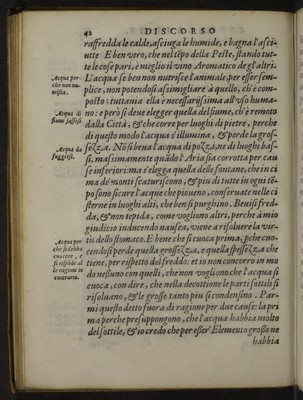 42 DISCORSO
raffredda le calde, asciuga le humide, e bagna l'asci-
utte E ben vero, che nel tẽpo della Peste, stando tut-
te le cose pari, è meglio il vino Aromatico degl'altri.
L'acqua se ben non nutrisce l'animale, per esser sem-
plice, non potendosi assimigliare à quello, ch'è cõ-
posto: tuttauia ella è necessarijssima all'vso huma-
no: e però si deue elegger quella del fiume, ch'è remoto
dalla Città, & che corre per luoghi di pietre, perche
di questo modo l'acqua s'illumina, & perde la gros-
sezza. Nõ si beua l'acqua di pozzi, ne di luoghi bas-
si, massimamente quãdo l'Aria sia corrotta per cau
se inferiori: ma s'elegga quella delle fontane, che in ci
ma de' monti scaturiscono, & piu di tutte in ogni tẽ-
po sono sicure l'acque che piouono, conseruate nelle ci
sterne in luoghi alti, che ben si purghino. Beuisi fred-
da, & non tepida, come vogliono altri, perche à mio
giudicio inducendo nausea, viene a risoluere la vir-
tù dello stomaco. E bene che si cuoca prima, pche cuo-
cendosi perde quella grossezza, e quella spessezza che
tiene, per rispetto del freddo: et io non concorro in mo
do nessuno con quelli, che non vogliono che l'acqua si
cuoca, con dire, che nella decottione le parti sottili si
risoluano, & le grosse tanto piu si condensino. Par-
mi questo detto fuora di ragione per due cause: la pri
ma perche presuppongono, che l'acqua habbia molto
del sottile, & io credo che per esser' Elemento grosso ne
habbia
Acqua per-
che non nu-
trisca.
Acqua di
fiumi sassosi
Acqua da
fuggirsi.
Acqua per
che si debba
cuocere, e
si rispõde al
le ragioni in
contrario.